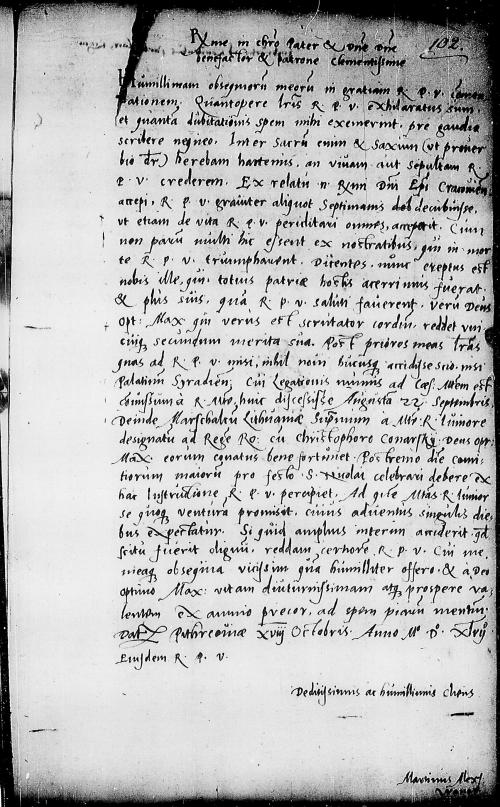 Rme in chro Pater & Dne Dne
102.
benefactor & patrone Clementissime
Humillimam obsequioru meoru in gratiam R. p. v. comen
dationem. Quantopere lris R. p. v. exhilaratus sum
et quanta dubitationis spem mihi exemerint. pre gaudio
scribere nequeo. Inter Sacru enim & Saxum (ut prover
bio dr) herebam hactenus, an vivam aut sepultam R.
p. v. crederem. Ex relatu n. Rmi Dni Epi Cracovien
accepi, R. p. v. graviter aliquot Septimanis decubuisse,
ut etiam de vita R. p. v. periclitari omnes, Cum
non paru multi hic essent ex nostratibus, qui in mor
te R. p. v. triumpharent. Dicentes. nunc ereptus est
nobis ille, qui totius patriae hostis acerrimus fuerat.
& plus suis, qua R. p. v. saluti faverent. veru Deus
Opt: Max qui verus est scrutator cordiu, reddet uni
cuiq secundum merita sua. Post priores meas lras
quas ad R. p. v. misi, nihil novi hucusq accidisse scio. nisi
Palatinu Syradien, Cui Legationis munus ad Caes: Mtem est
comissum a R. Mte, huic discessisse Augusta 22. Septembris.
Deinde Marschalcu Lithuaniae Supremum a Mte R. Iuniore
designatu ad Rege Ro: cu Christophoro Conarsky. Deus opt:
Max. eorum conatus bene fortunet. Postremo die comi
tiorum maioru pro festo S. Nicolai celebrari debere ex
hac Instructione R. p. v. percipiet. Ad q lte Mtas R. Iunior
se quoq ventura promisit. cuius adventus singulis die
bus expectatur. Si quid amplius interim acciderit qd
scitu fuerit dignu, reddam certiore R. p. v. Cui me
meaq obsequia vicissim qua humiliter offero. & a Deo
optimo Max: vitam diuturnissimam atq prospere va
lentem ex animo precor, ad spem piaru mentiu.
Dat Pethrcoviae xviij Octobris. Anno Mo Do xlvij
Eiusdem R. p. v.
Deditissimus ac humillimus Cliens
Martinus Alex